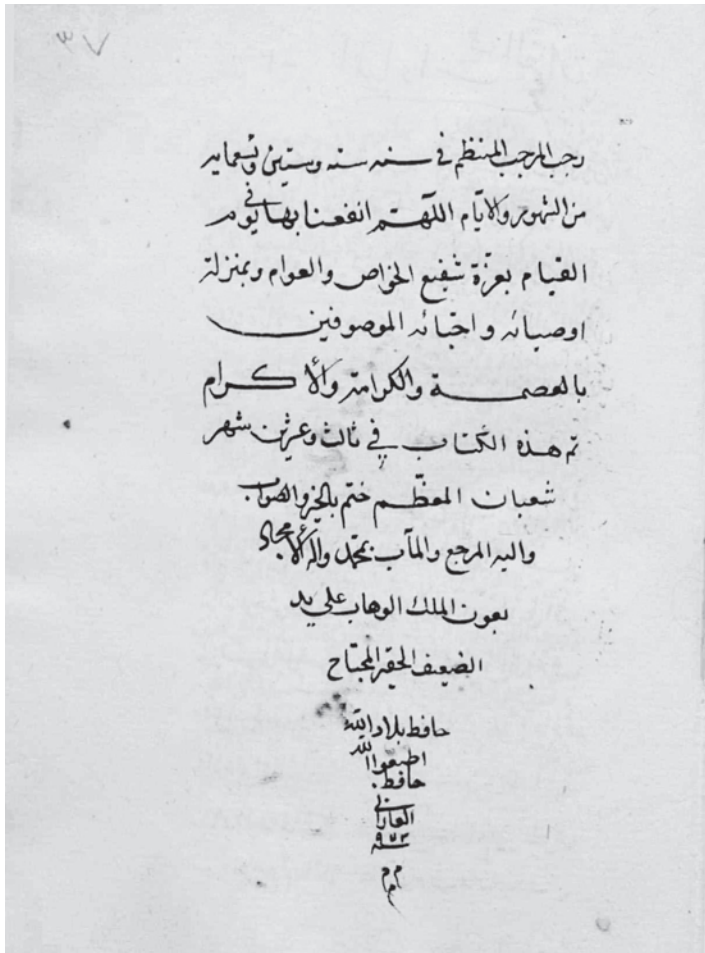 ٣٧
رجب المرجب المنتظم في سنه سته وستين وتسعمايه
من الشهور والايام اللهم انفعنا بها في يوم
القيام بعزة شفيع الخواص والعوام وبمنزلة
اوصيائه واحبائه الموصوفين
بالعصمة والكرامة والاكرام
تم هذه الكتاب في ثالث وعشرين شهر
شعبان المعظم ختم بالخير والصواب
واليه المرجع والمآب بمحمد وآله الأمجاد
بعون الملك الوهاب على يد
الضعيف الحقير المحتاج
حافظ بلاد الله
حافظ
٩٧٣